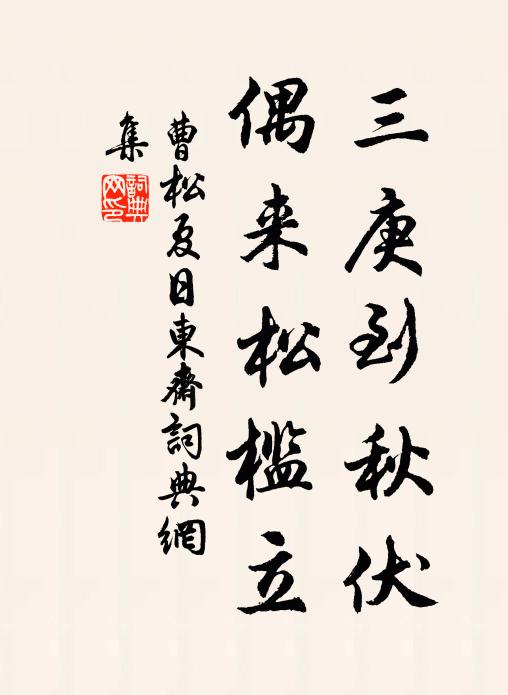 三庚到秋伏
偶来松檻立
曹松夏日東齋詞典網
集
詞典
网印